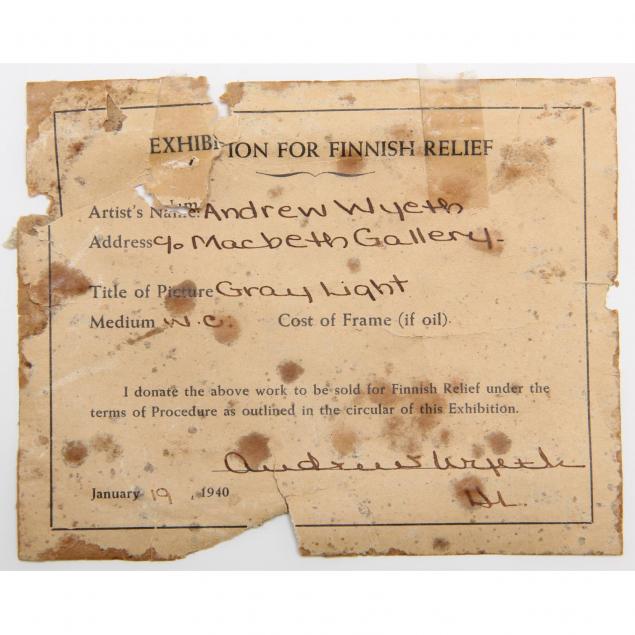 EXHIBITION FOR FINNISH RELIEF
Artist's Name Andrew Wyeth
Address c/o Macbeth Gallery-
Title of Picture Gray Light
Medium W.C. Cost of Frame (if oil).
I donate the above work to be sold for Finnish Relief under the
terms of Procedure as outlined in the circular of this Exhibition.
Andrew Wyeth
January 19, 1940